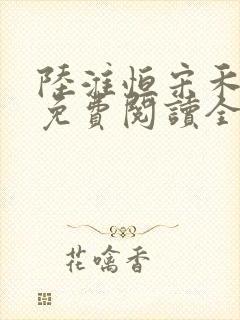 陸淮恒宋禾
免費閱讀全
花噙香